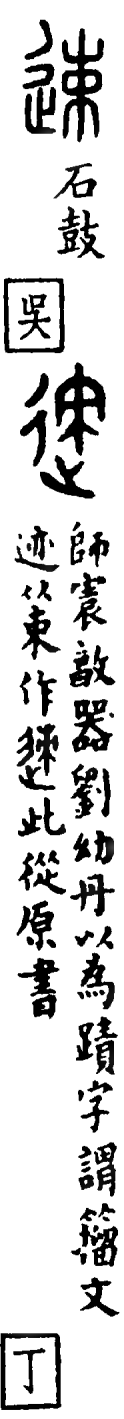 速
石鼓
吳
師寰敦器劉幼丹以為蹟字謂籀文
迹从朿作𨒪此從原書
丁